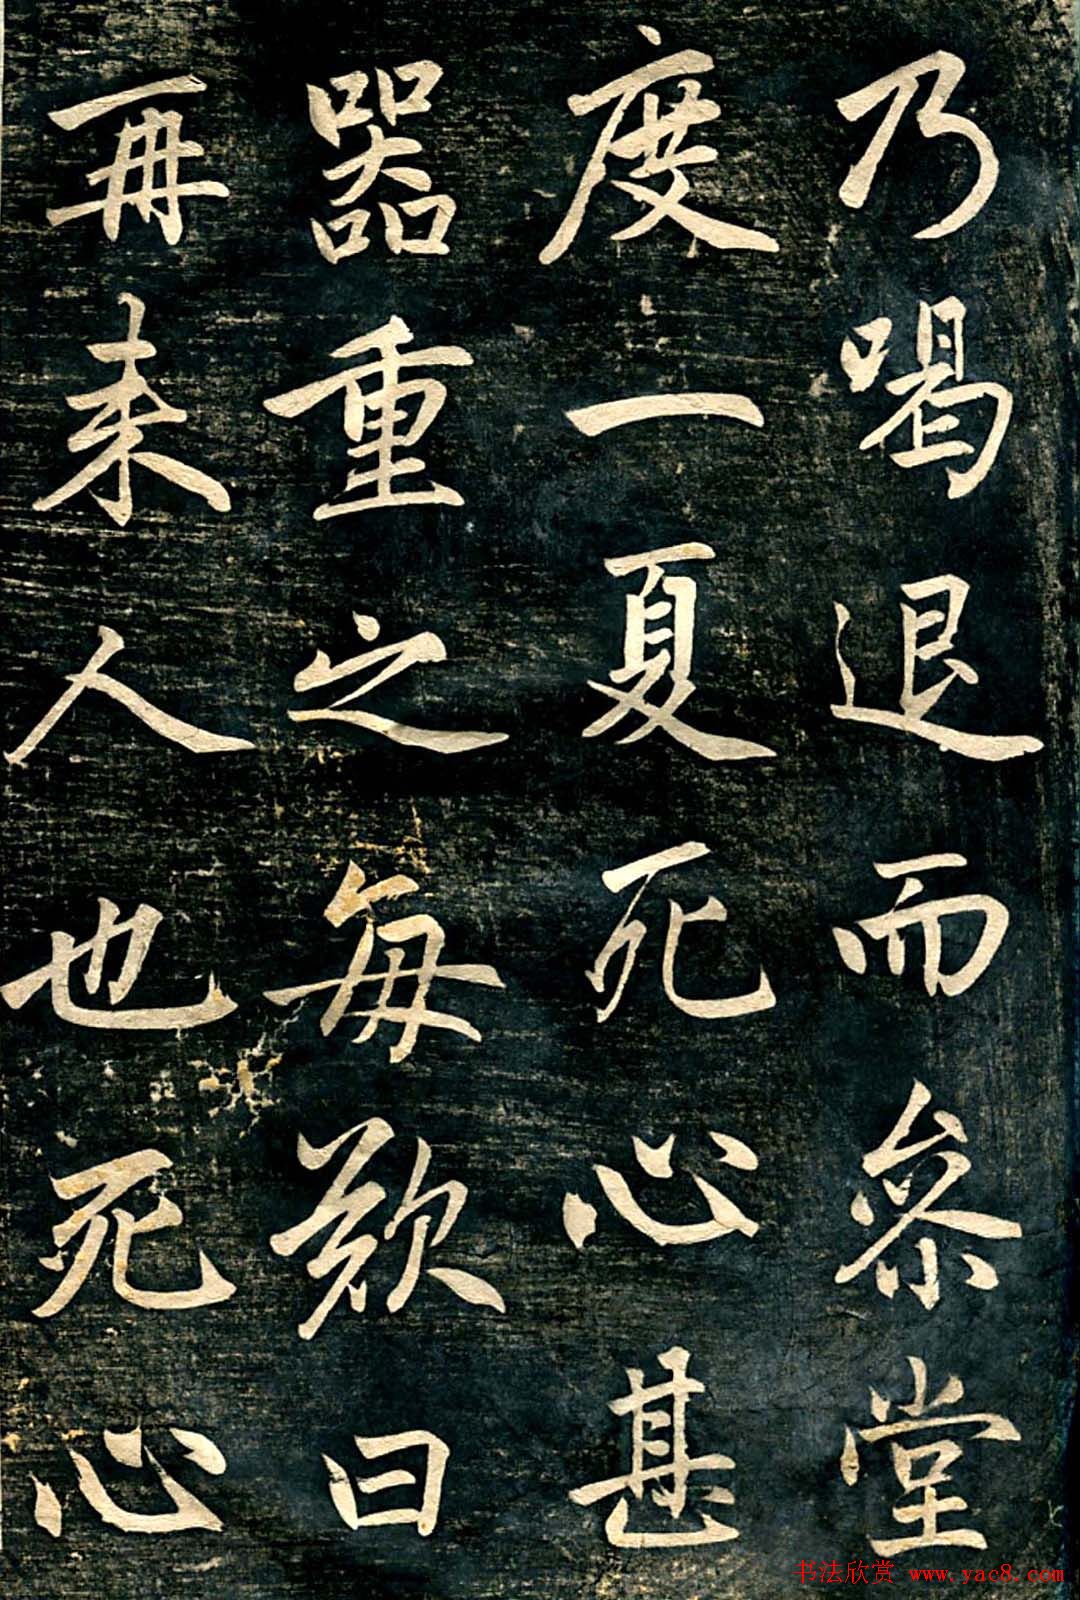 乃喝退而叅堂
度一夏死心甚
器重之每歎曰
再来人也死心
书法欣赏 www.yac8.com